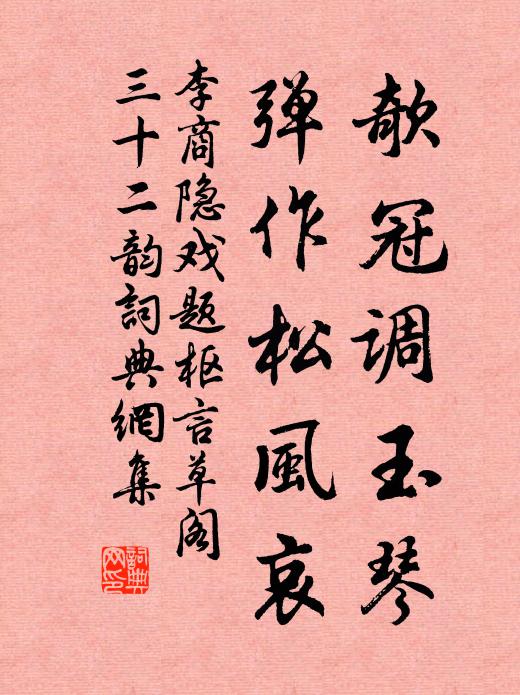 欹冠调玉琴
弹作松風哀
李商隐戏题枢言草阁
三十二韵詞典網集
詞典网印